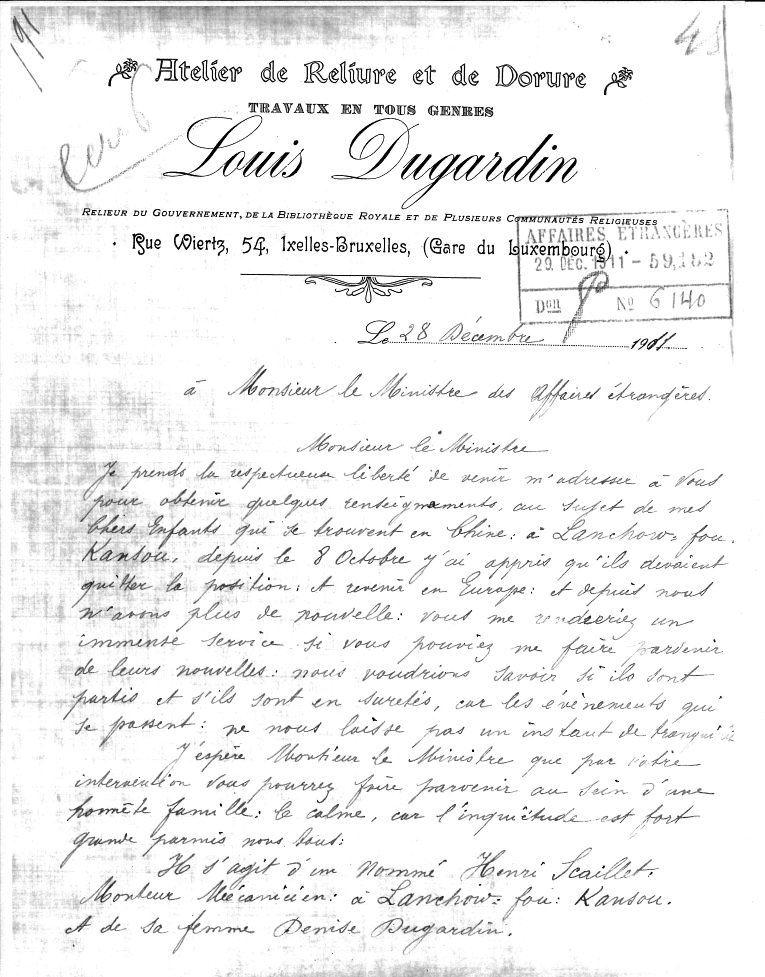 191
45
Atelier de Reliure et de Dorure
TRAVAUX EN TOUS GENRES
Louis Dugardin
RELIEUR DU GOUVERNEMENT, DE LA BIBLIOTHÈQUE ROYALE ET DE PLUSIEURS COMMUNAUTÉS RELIGIEUSES
Rue Wiertz, 54, Ixelles-Bruxelles, (Gare du Luxembourg)
AFFAIRES ETRANGÈRES
29. DEC. 1911 - 59,152
Don P No 6140
Le 28 Décembre 1911.
à Monsieur le Ministre des Affaires étrangères.
Monsieur le Ministre
Je prends la respectueuse liberté de venir m'adresser à Vous
pour obtenir quelques renseignements, au sujet de mes
Chers Enfants qui se trouvent en Chine: à Lanchow= fou.
Kansou, depuis le 8 Octobre j'ai appris qu'ils devaient
quitter la position: et revenir en Europe: et depuis nous
n'avons plus de nouvelle: vous me renderiez un
immense service si vous pouviez me faire parvenir
de leurs nouvelles: nous voudrions savoir si ils sont
partis et s'ils sont en suretés, car les évènements qui
se passent: ne nous laisse pas un instant de tranqui
J'espère Monsieur le Ministre que par votre
intervention vous pourrez faire parvenir au sein d'une
honnête famille: le calme, car l'inquiètude est fort
grande parmis nous tous:
Il s'agit d'un Nommé Henri Scaillet.
Monteur Mécanicien: à Lanchow= fou: Kansou.
et de sa femme Denise Dugardin.